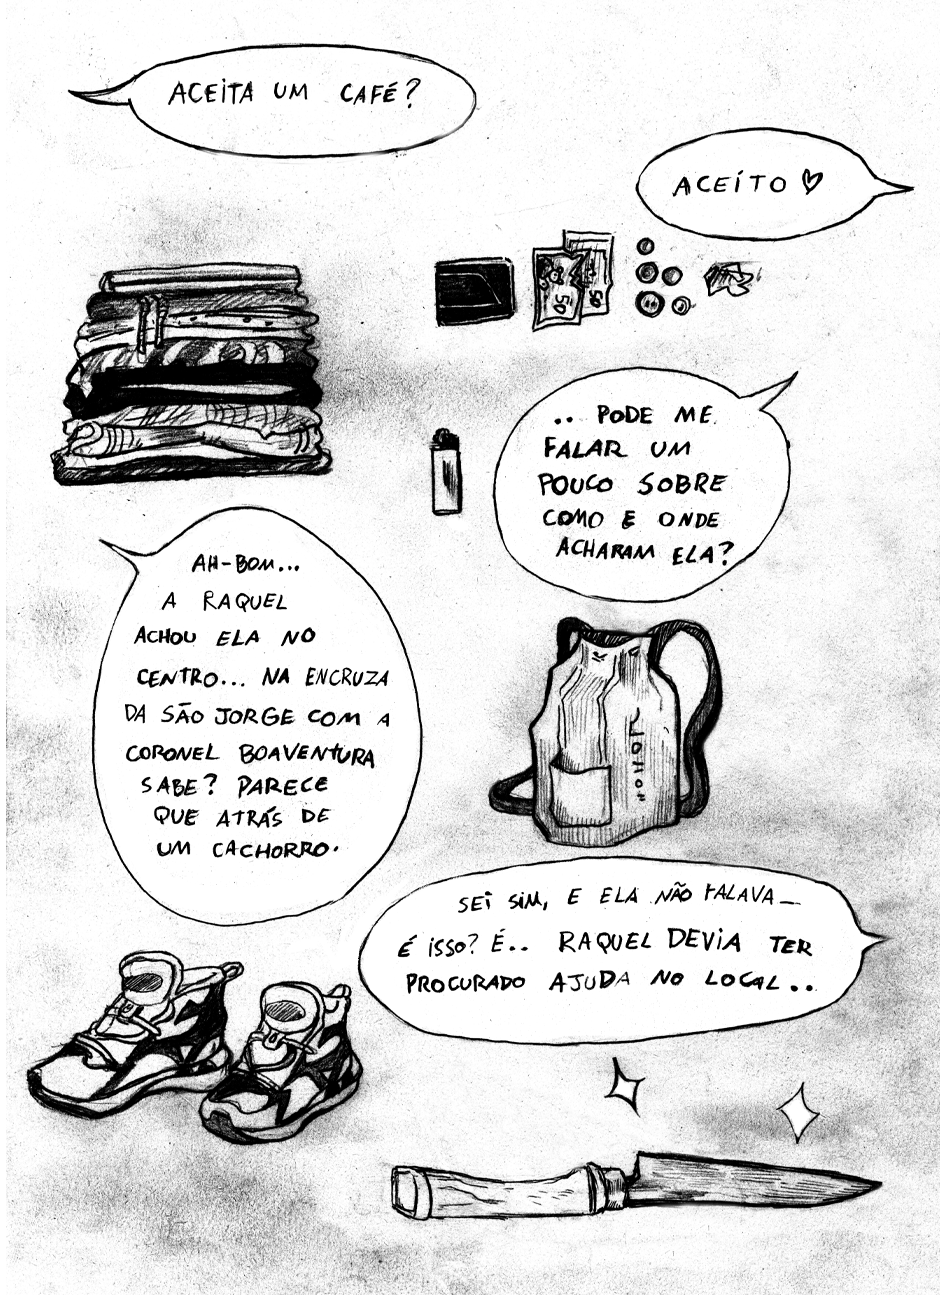 ACEITA UM CAFÉ?
ACEITO ♡
50
50
.. PODE ME
FALAR UM
POUCO SOBRE
COMO E ONDE
ACHARAM ELA?
AH-BOM...
A RAQUEL
ACHOU ELA NO
CENTRO... NA ENCRUZA
DA SÃO JORGE COM A
CORONEL BOAVENTURA
SABE? PARECE
QUE ATRÁS DE
UM CACHORRO.
SEI SIM, E ELA NÃO FALAVA_
É ISSO? É.. RAQUEL DEVIA TER
PROCURADO AJUDA NO LOCAL..